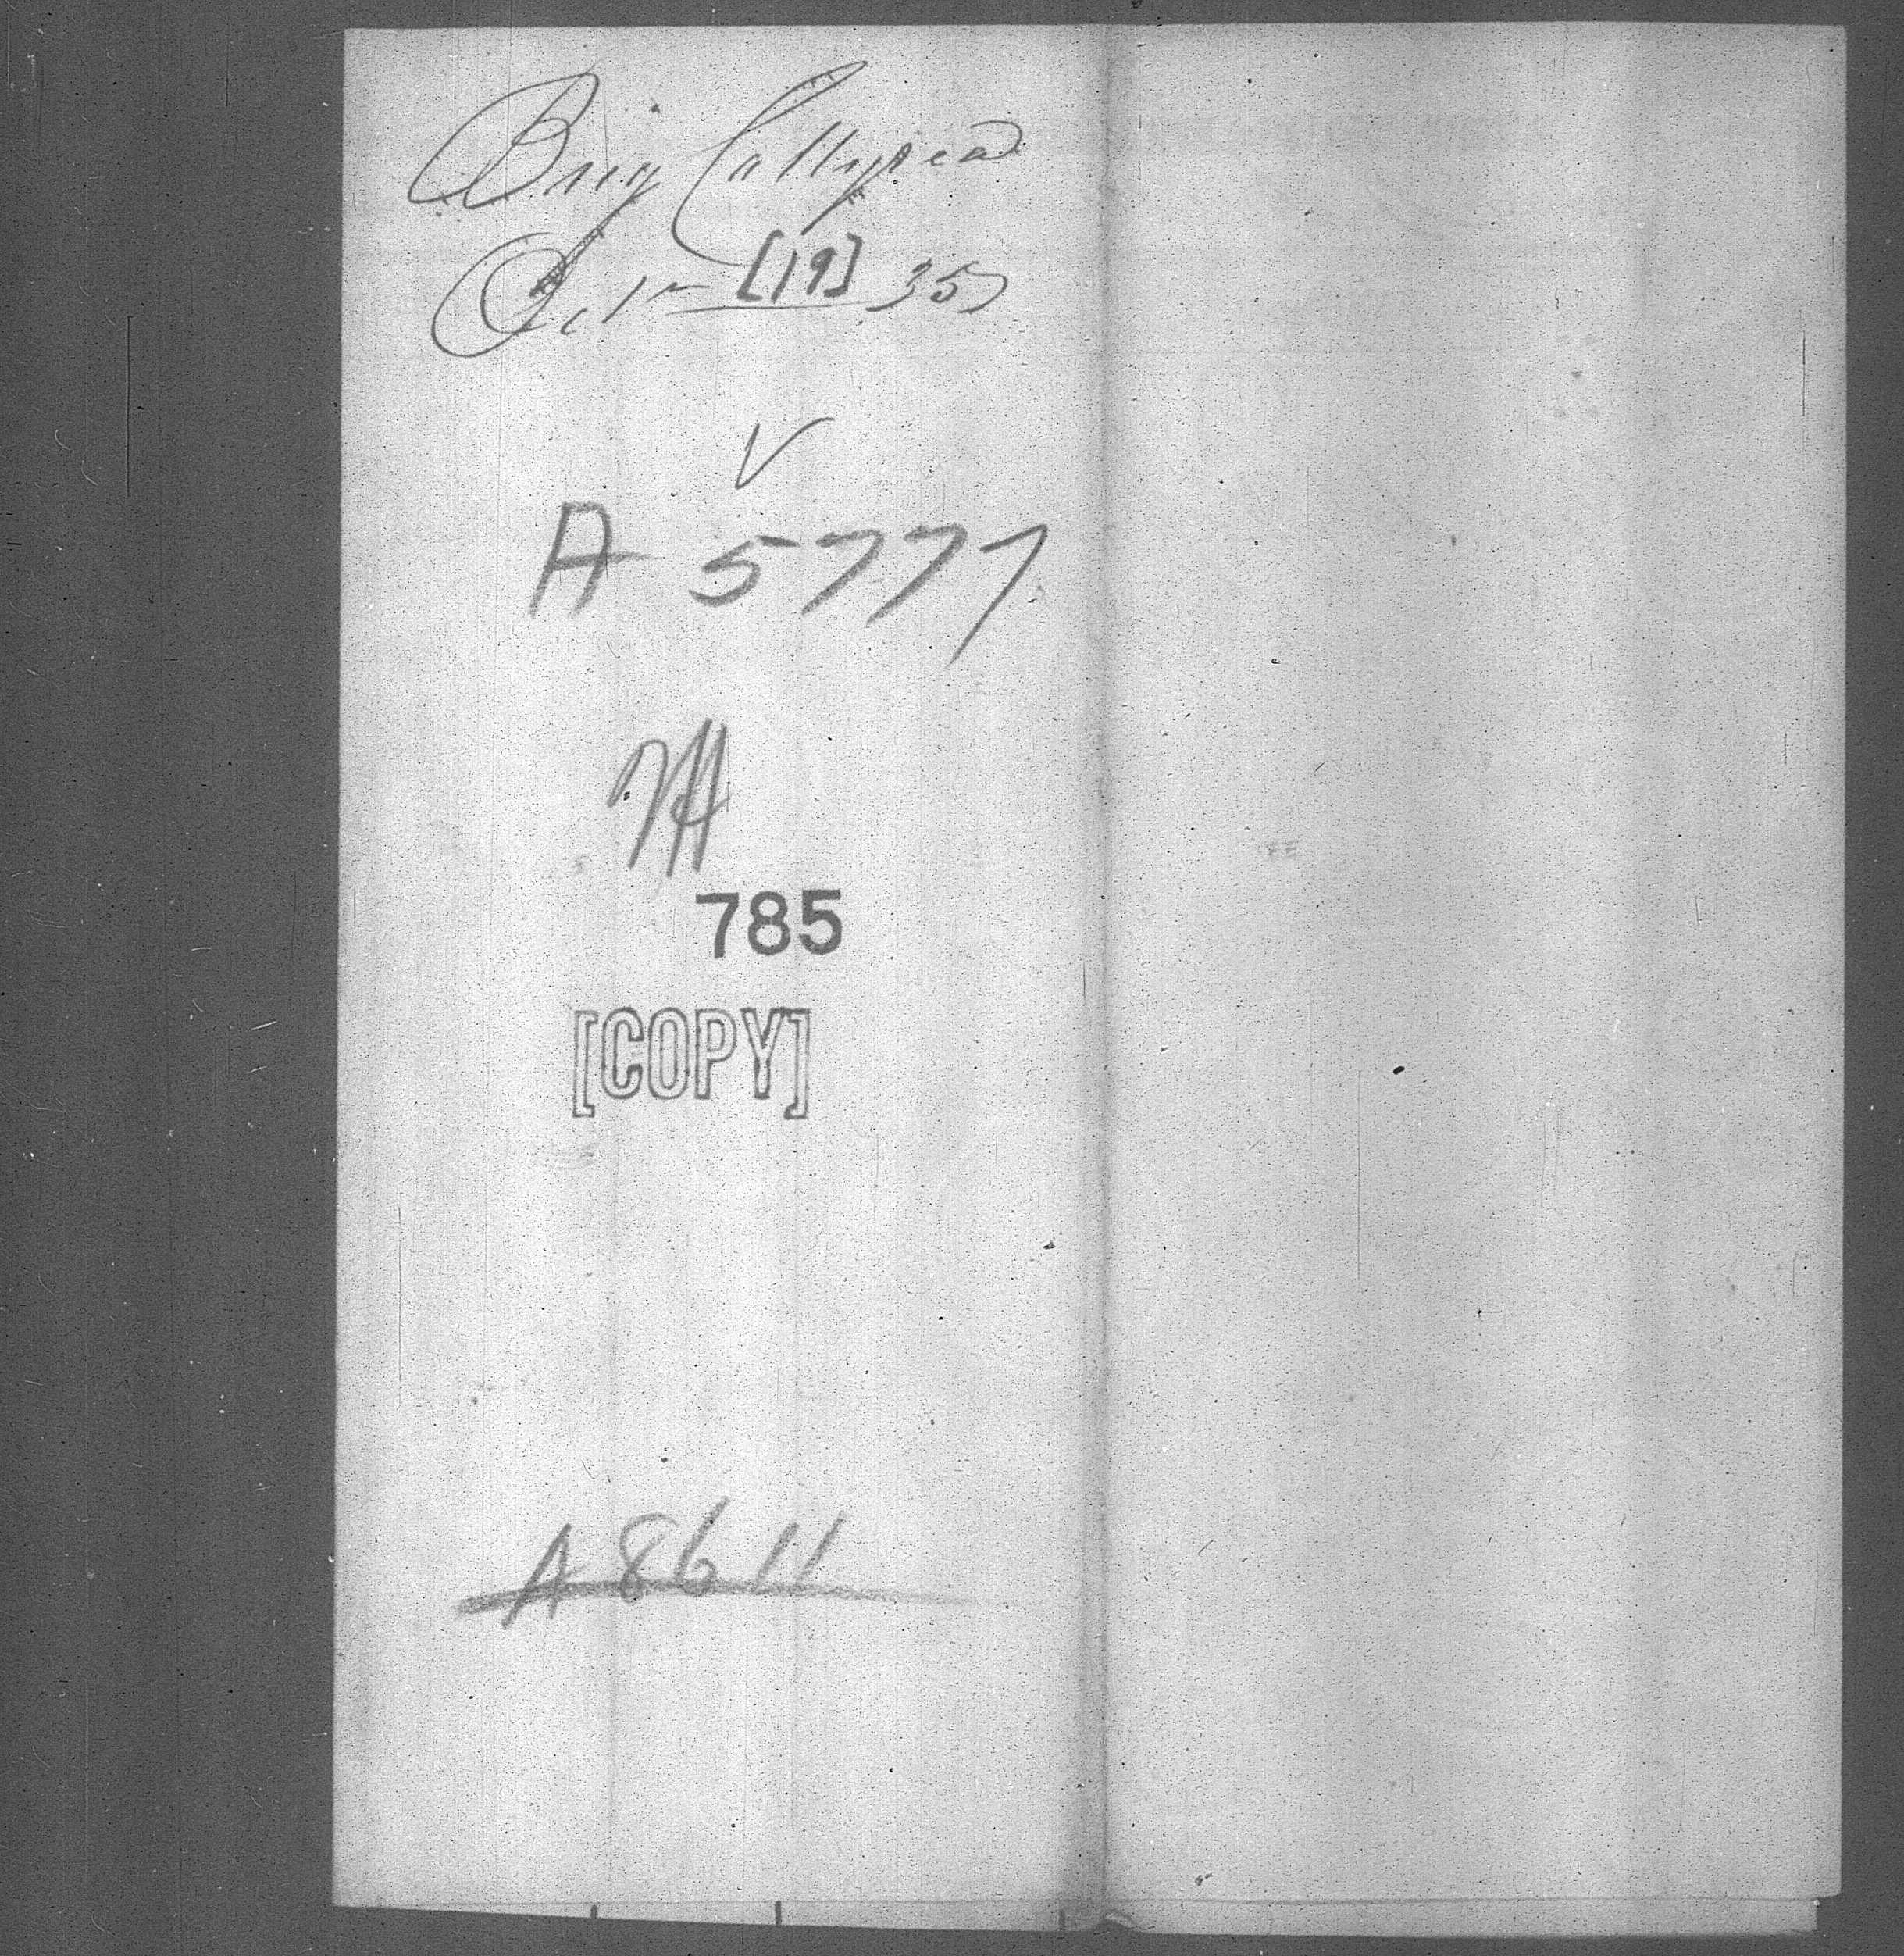 Brig Callypsea
Octr [19] 35
A 5777
785
[COPY]
A 8611